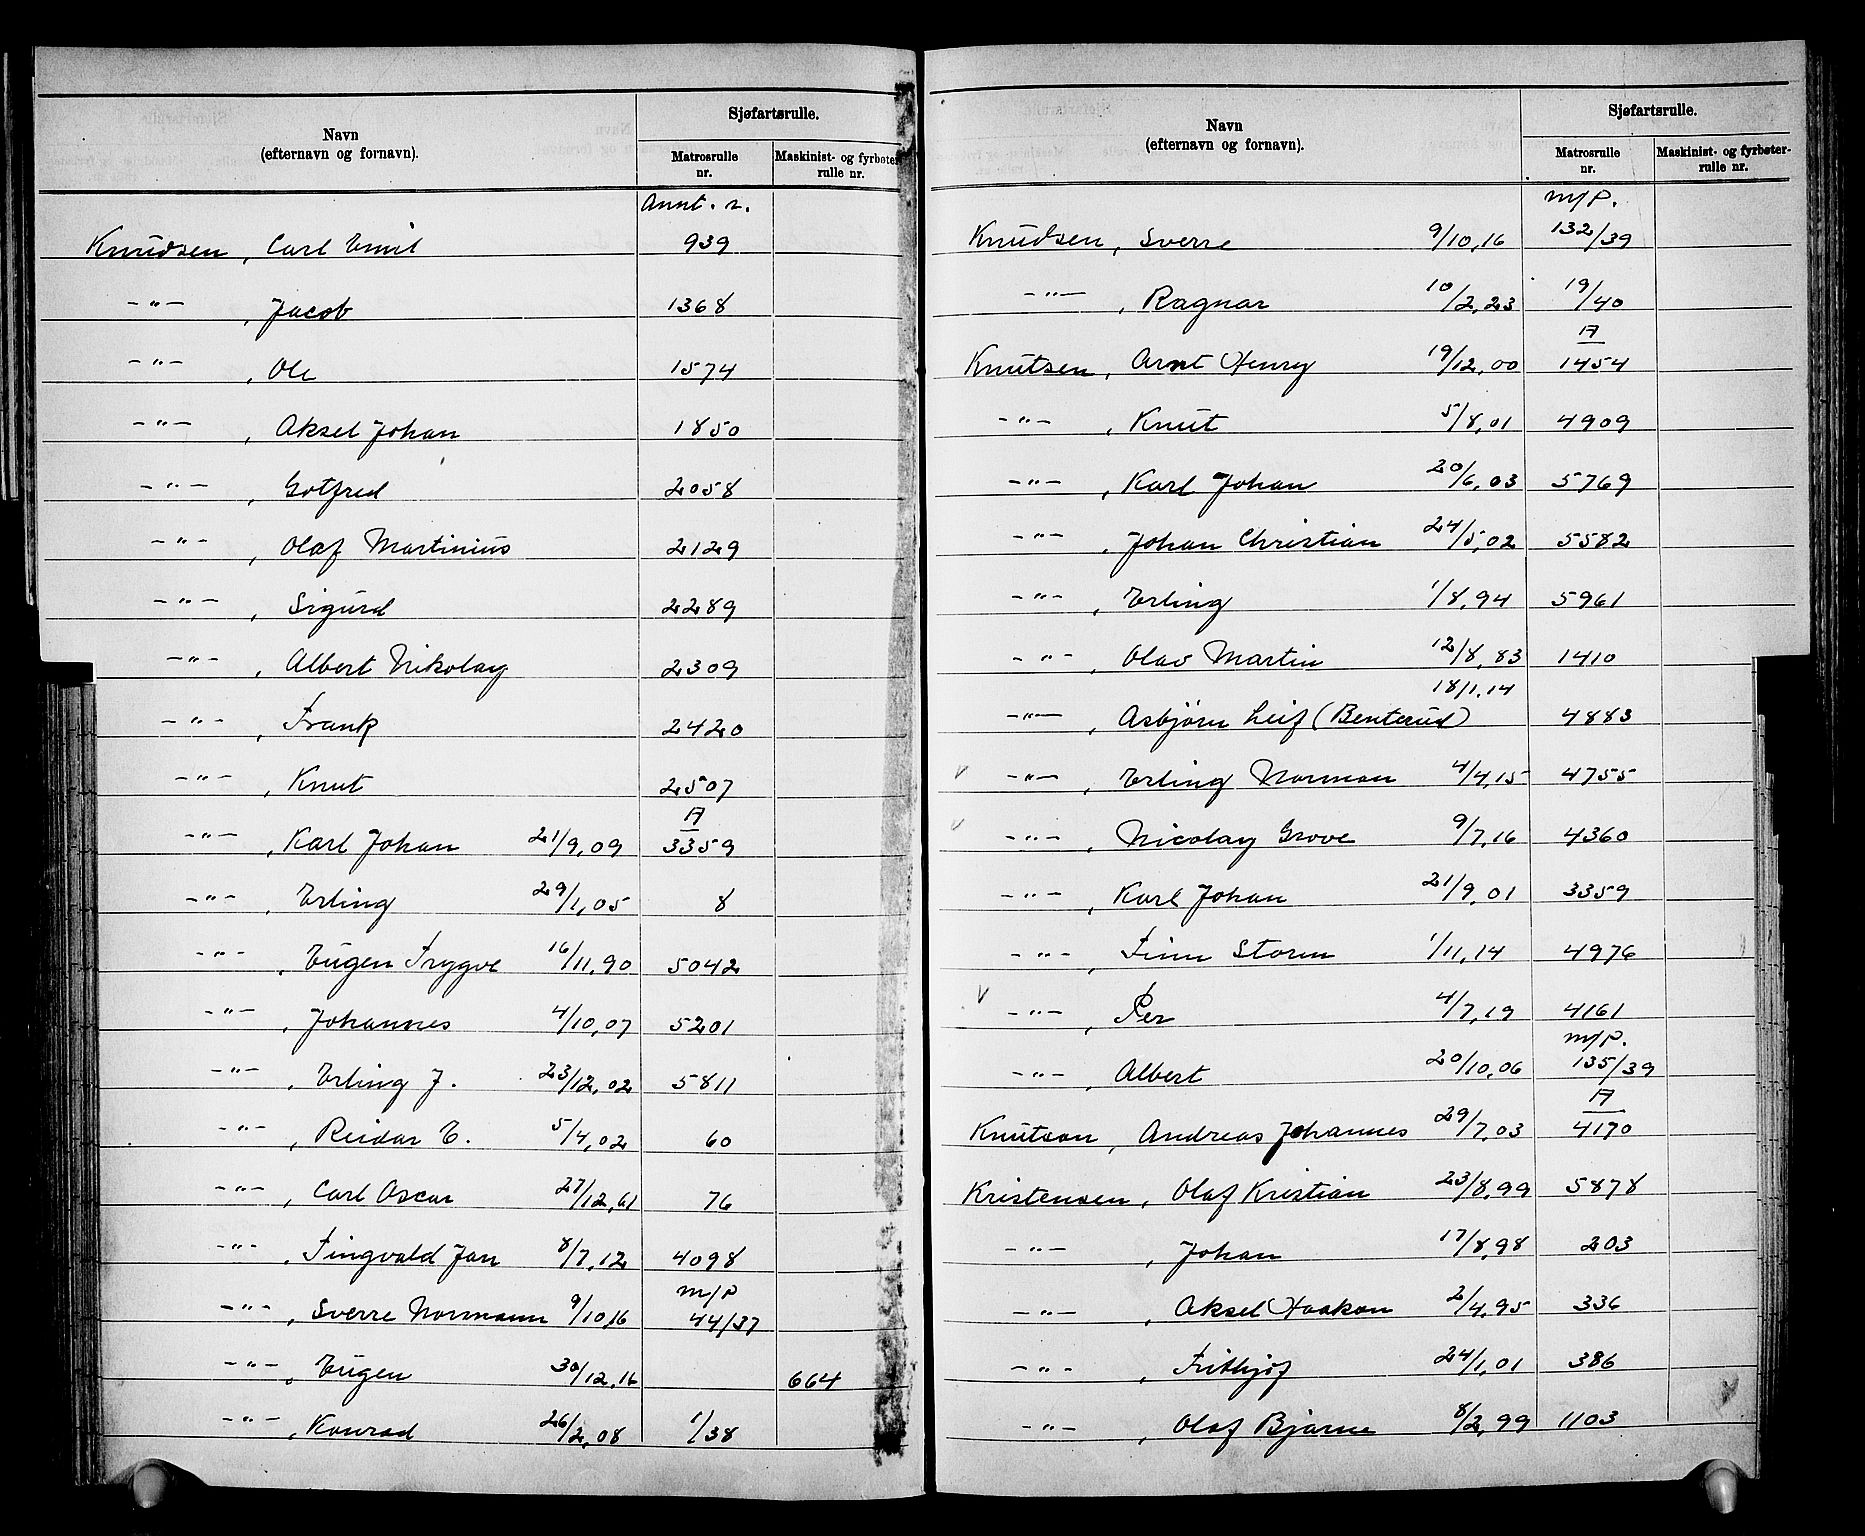 Navn
(efternavn og fornavn).
Sjøfartsrulle.
Matrosrulle
nr.
Maskinist- og fyrbøter-
rulle nr.
Annt. r.
Knudsen, Carl Emil 939
-"- , Jacob 1368
-"- , Ole 1574
-"- , Aksel Johan 1850
-"- , Gotfred 2058
-"- , Olaf Martinius 2129
-"- , Sigurd 2289
-"- , Albert Nikolay 2309
-"- , Frank 2420
-"- , Knut 2507
A
-"- , Karl Johan 21/9,09 3359
-"- , Erling 29/1,05 8
-"- , Eugen Trygve 16/11,90 5042
-"- , Johannes 4/10,07 5201
-"- , Erling J. 23/12,02 5811
-"- , Reidar E. 5/4,02 60
-"- , Carl Oscar 27/12,61 76
-"- , Tingvald Jan 8/7,12 4098
m/P
-"- , Sverre Normann 9/10,16 44/37
-"- , Eugen 30/12,16 664
-"- , Konrad 26/2,08 1/38
Navn
(efternavn og fornavn).
Sjøfartsrulle.
Matrosrulle
nr.
Maskinist- og fyrbøter-
rulle nr.
m/P.
Knudsen, Sverre 9/10,16 132/39
-"- , Ragnar 10/2,23 19/40
A
Knutsen, Arnt Henry 19/12,00 1454
-"- , Knut 5/8,01 4909
-"- , Karl Johan 20/6,03 5769
-"- , Johan Christian 24/5,02 5582
-"- , Erling 1/8,94 5961
-"- , Olav Martin 12/8,83 1410
18/1,14
-"- , Asbjørn Leif (Benterud) 4883
v -"- , Erling Norman 4/4,15 4755
v -"- , Nicolay Grove 9/7,16 4360
-"- , Karl Johan 21/9,01 3359
-"- , Finn Storm 1/11,14 4976
v -"- , Per 4/7,19 4161
m/P.
-"- , Albert 20/10,06 135/39
A
Knutson, Andreas Johannes 29/7,03 4170
Kristensen, Olaf Kristian 23/8,99 5878
-"- , Johan 17/8,98 203
-"- , Aksel Haakon 2/4,95 336
-"- , Frithjof 24/1,01 386
-"- , Olaf Bjarne 8/2,99 1103
v